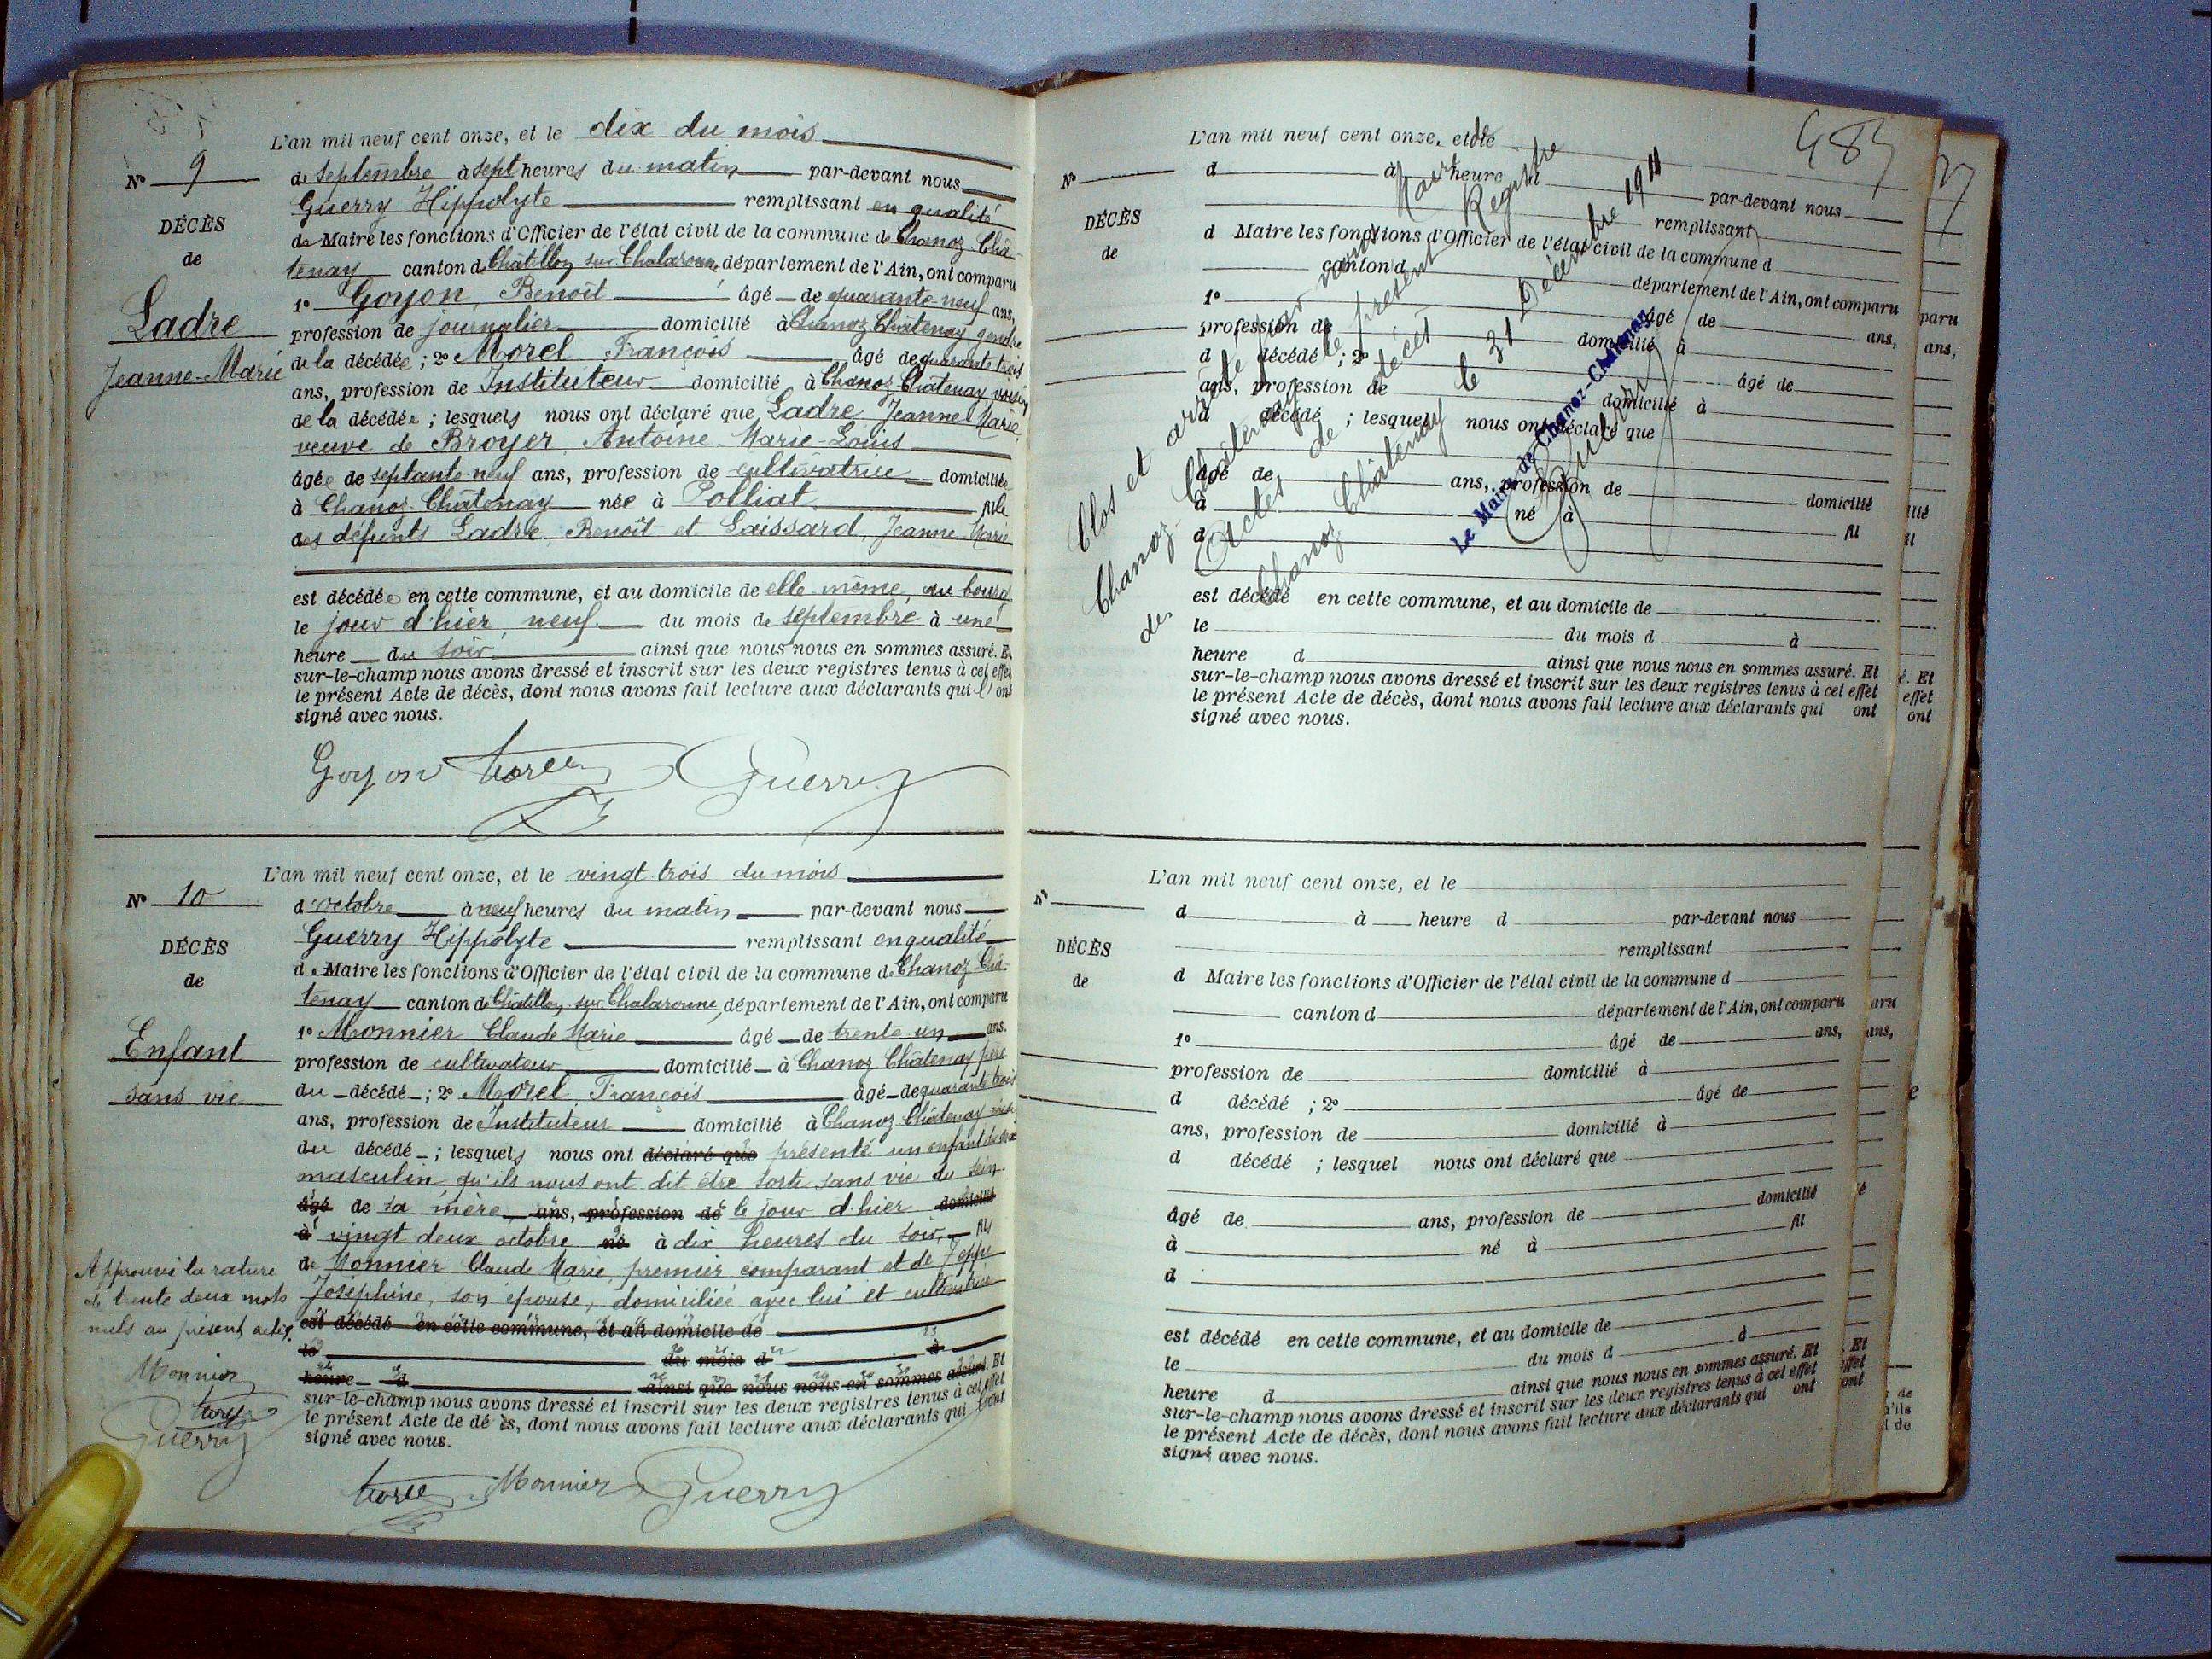 L'an mil neuf cent onze, et le dix du mois
N° 9
de septembre à sept heures du matin par-devant nous
Guerry Hippolyte remplissant en qualité
DÉCÈS
de Maire les fonctions d'Officier de l'état civil de la commune de Chanoz-Châ-
de
tenay canton de Châtillon sur Chalaronne, département de l'Ain, ont comparu
1° Goyon, Benoît âgé de quarante-neuf ans,
Ladre
profession de journalier domicilié à Chanoz Châtenay gendre
Jeanne-Marie
de la décédée ; 2° Morel François âgé de quarante trois
ans, profession de Instituteur domicilié à Chanoz-Châtenay voisin
de la décédée ; lesquels nous ont déclaré que Ladre Jeanne-Marie,
veuve de Broyer Antoine-Marie-Louis
âgée de septante-neuf ans, profession de cultivatrice domiciliée
à Chanoz-Châtenay née à Polliat fille
des défunts Ladre, Benoît et Laissard, Jeanne-Marie
est décédée en cette commune, et au domicile de elle même, au bourg
le jour d'hier, neuf du mois de septembre à une
heure du soir ainsi que nous nous en sommes assuré. Et
sur-le-champ nous avons dressé et inscrit sur les deux registres tenus à cet effet
le présent Acte de décès, dont nous avons fait lecture aux déclarants qui l'ont
signé avec nous.
Goyon Morel Guerry
L'an mil neuf cent onze, et le vingt-trois du mois
N° 10
d'octobre à neuf heures du matin par-devant nous
Guerry Hippolyte remplissant en qualité
DÉCÈS
de Maire les fonctions d'Officier de l'état civil de la commune de Chanoz Châ-
de
tenay canton de Châtillon sur Chalaronne, département de l'Ain, ont comparu
1° Monnier Claude Marie âgé de trente-un ans.
Enfant
profession de cultivateur domicilié à Chanoz Châtenay père
sans vie
du décédé ; 2° Morel François âgé de quarante trois
ans, profession de Instituteur domicilié à Chanoz-Châtenay voisin
du décédé ; lesquels nous ont déclaré que présenté un enfant du sexe
masculin qu'ils nous ont dit être sorti sans vie du sein
âgé de sa mère ans, profession de le jour d'hier domicilié
à vingt deux octobre né à dix heures du soir, fils
de Monnier Claude Marie, premier comparant et de
Joséphine, son épouse, domiciliée avec lui et cultivatrice
Approuvé la rature
de trente deux mots
nuls au présent acte.
Monnier
Morel
Guerry
est décédé en cette commune, et au domicile de
le du mois d à
heure d ainsi que nous nous en sommes assuré. Et
sur-le-champ nous avons dressé et inscrit sur les deux registres tenus à cet effet
le présent Acte de décès, dont nous avons fait lecture aux déclarants qui l'ont
signé avec nous.
Morel Monnier Guerry
L'an mil neuf cent onze, et le
N°
d à heure d par-devant nous
remplissant
DÉCÈS
d Maire les fonctions d'Officier de l'état civil de la commune d
de
canton d département de l'Ain, ont comparu
1° âgé de ans,
profession de domicilié à
d décédé ; 2° âgé de
ans, profession de domicilié à
d décédé ; lesquel nous ont déclaré que
âgé de ans, profession de domicilié
à né à fil
d
est décédé en cette commune, et au domicile de
le du mois d à
heure d ainsi que nous nous en sommes assuré. Et
sur-le-champ nous avons dressé et inscrit sur les deux registres tenus à cet effet
le présent Acte de décès, dont nous avons fait lecture aux déclarants qui ont
signé avec nous.
Clos et arrêté par nous Maire de
Chanoz-Châtenay le présent Registre
des Actes de décès
Chanoz Châtenay le 31 Décembre 1911
Le Maire de Chanoz-Chatenay
Guerry
L'an mil neuf cent onze, et le
N°
d à heure d par-devant nous
remplissant
DÉCÈS
d Maire les fonctions d'Officier de l'état civil de la commune d
de
canton d département de l'Ain, ont comparu
1° âgé de ans,
profession de domicilié à
d décédé ; 2° âgé de
ans, profession de domicilié à
d décédé ; lesquel nous ont déclaré que
âgé de ans, profession de domicilié
à né à fil
d
est décédé en cette commune, et au domicile de
le du mois d à
heure d ainsi que nous nous en sommes assuré. Et
sur-le-champ nous avons dressé et inscrit sur les deux registres tenus à cet effet
le présent Acte de décès, dont nous avons fait lecture aux déclarants qui ont
signé avec nous.